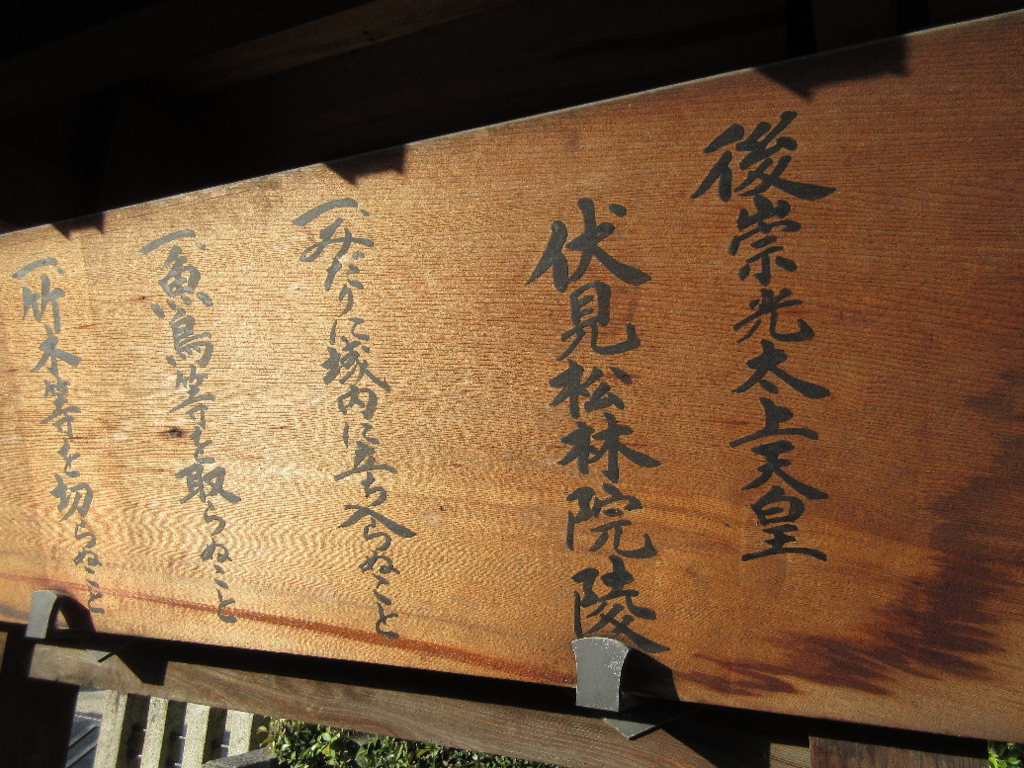 後崇光太上天皇
伏見松林院陵
一、みだりに塚内に立ち入らぬこと
一、魚鳥等を取らぬこと
一、竹木等を切らぬこと